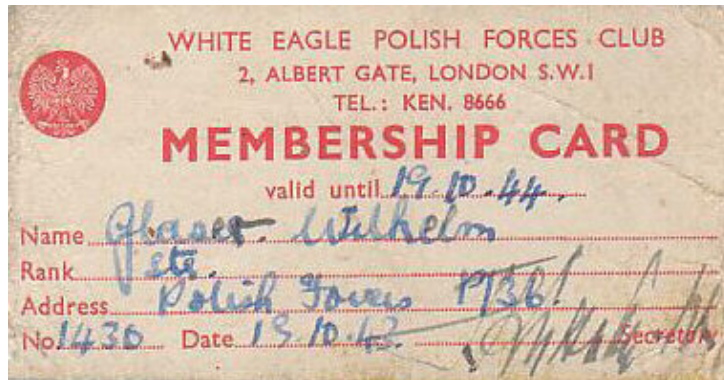 WHITE EAGLE POLISH FORCES CLUB
2, ALBERT GATE, LONDON S.W.1
TEL.: KEN. 8666
MEMBERSHIP CARD
valid until 19.10.44.
Name Glaser. Wilhelm
Rank
Address Polish Forces P/36!
No. 1430 Date 19.10.43.
Secretary